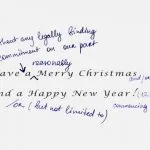 without any legally binding
commitment on our part
reasonably
Have a ^ Merry Christmas
and/or
And a Happy New Year!
or (but not limited to)
commencing